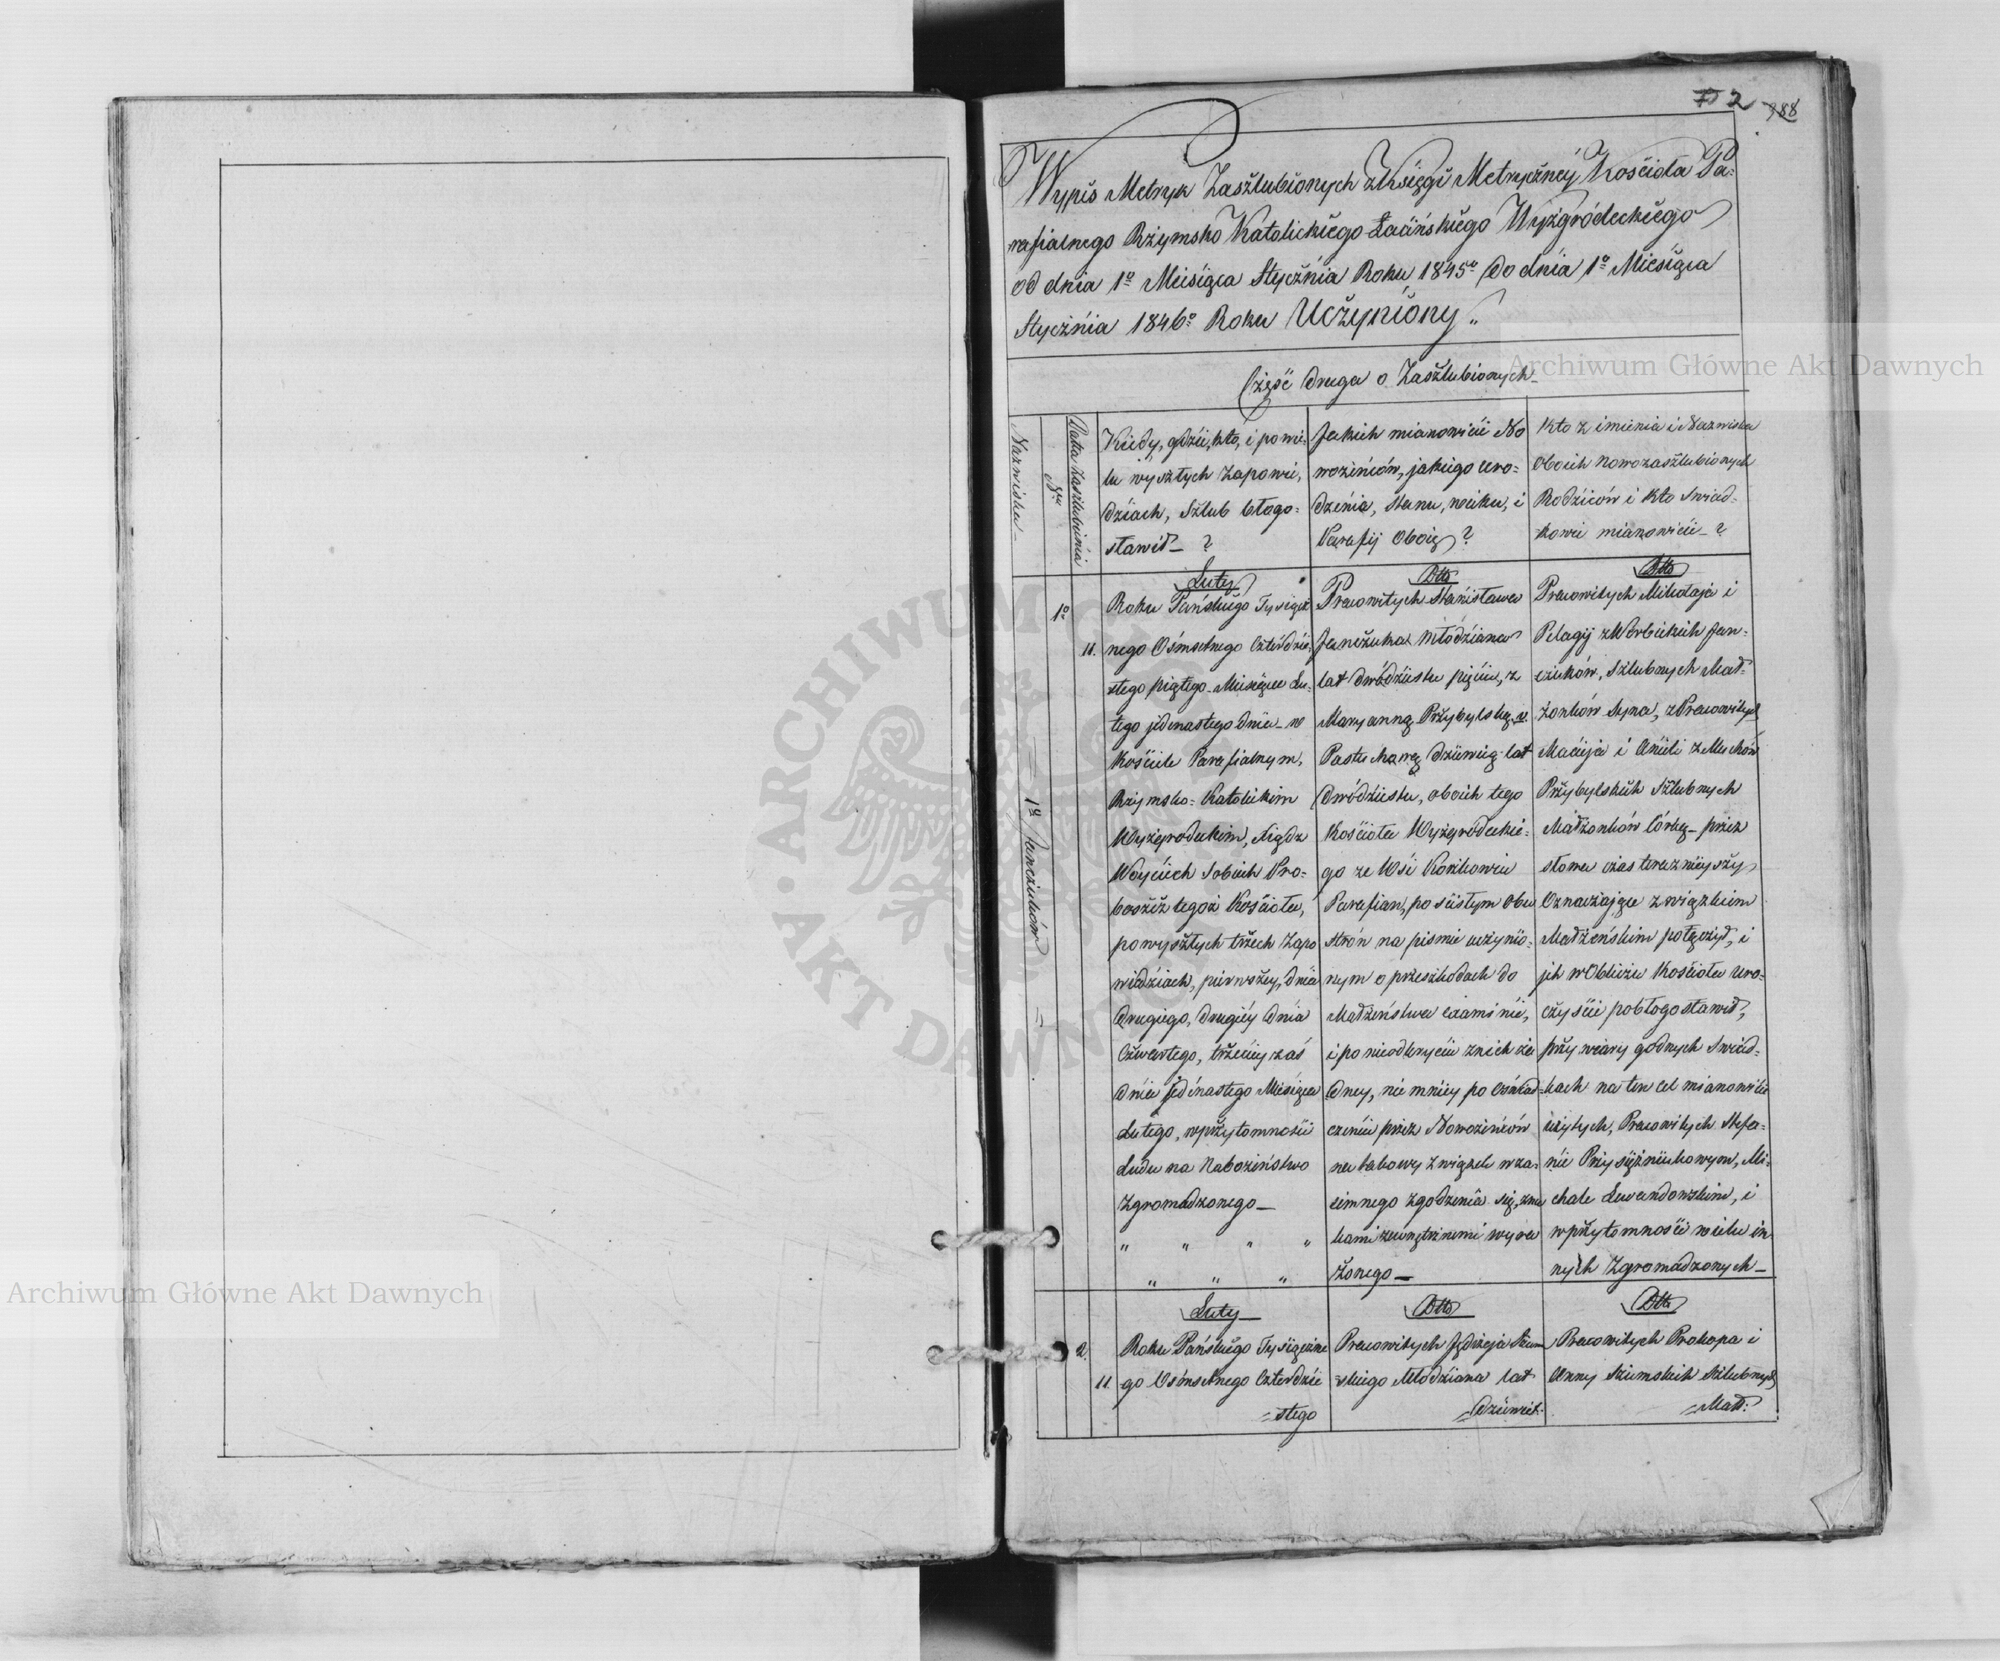 2 988
Wypis Metryk Zaszlubionych z Księgi Metryczney Kościoła Pa-
rafialnego Rzymsko Katolickiego Łacińskiego Wyżgródeckiego
od dnia 1º Miesiąca Stycznia Roku 1845º do dnia 1º Miesiąca
Stycznia 1846º Roku Uczyniony
Część druga o Zaszlubionych
Nazwiska
Nru
Data Zaszlubinia
Kiedy, gdzie, kto, i po wie-
lu wyszłych Zapowie-
dziach, Szlub błogo-
sławił ?
Jakich mianowicie No
wożeńców, jakiego uro-
dzenia, stanu, wieku, i
Parafij Oboię ?
Kto z imienia i Nazwiska
Oboich Nowozaszlubionych
Rodziców i Kto Swiad-
kowie mianowicie ?
1º
11.
18 Janczuków
Luty
Roku Pańskiego Tysiącz
nego Ośmsetnego Czterdzie-
stego piątego Miesiąca Lu-
tego jedenastego dnia w
Kościele Parafialnym,
Rzymsko-Katolickim
Wyżgrodeckim, Xiądz
Woyciech Sobich Pro-
boszcz tegoż Kościoła,
po wyszłych trzech Zapo
wiedziach, pierwszey, dnia
Drugiego, drugiéy dnia
Czwartego, trzeciey zaś
dnia jedenastego Miesiąca
Lutego, w przytomności
Ludu na Nabożeństwo
Zgromadzonego
Dtto
Pracowitych Stanisława
Janczuka Młodziana
lat dwódziestu pięciu, z
Maryanną Przybylską v.
Pastuchową dziewicą lat
dwódziestu, oboich tego
Kościoła Wyżgródeckie-
go ze Wsi Koszkowiec
Parafian, po ścisłym obu
stron na pismie uczynio-
nym o przeszkodach do
Małżeństwa examinie,
i po nieodkryciu z nich ża
dney, nie mniey po oświad-
czeniu przez Nowożeńców
na takowy związek wza-
iemnego zgodzenia się, zna
kami zewnętrznemi wyra
żonego
Dtto
Pracowitych Mikołaja i
Pelagij z Worbickich Jan-
czuków, Szlubnych Mał-
żonków Syna, z Pracowitych
Macieja i Anieli z Muchów
Przybylskich Szlubnych
Małżonków Córką przez
słowa czas teraznieyszy
Oznaczające związkiem
Małżeńskim połączył, i
jch w Obliczu Kościoła uro-
czyście pobłogosławił,
przy wiary godnych Swiad-
kach na ten cel mianowicie
użytych, Pracowitych Stefa-
nie Przysiężniukowym, Mi-
chale Lewandowskim, i
w przytomności wielu in
nych Zgromadzonych
2.
11
Luty
Roku Pańskiego Tysiączne
go Osmsetnego Czterdzie
stego
Dtto
Pracowitych Jędrzeja Szum
skiego Młodziana lat
dziewięt.
Dtto
Pracowitych Prokopa i
Anny Szumskich Szlubnych
Mał:
Archiwum Główne Akt Dawnych
Archiwum Główne Akt Dawnych
ARCHIWUM GŁÓWNE AKT DAWNYCH